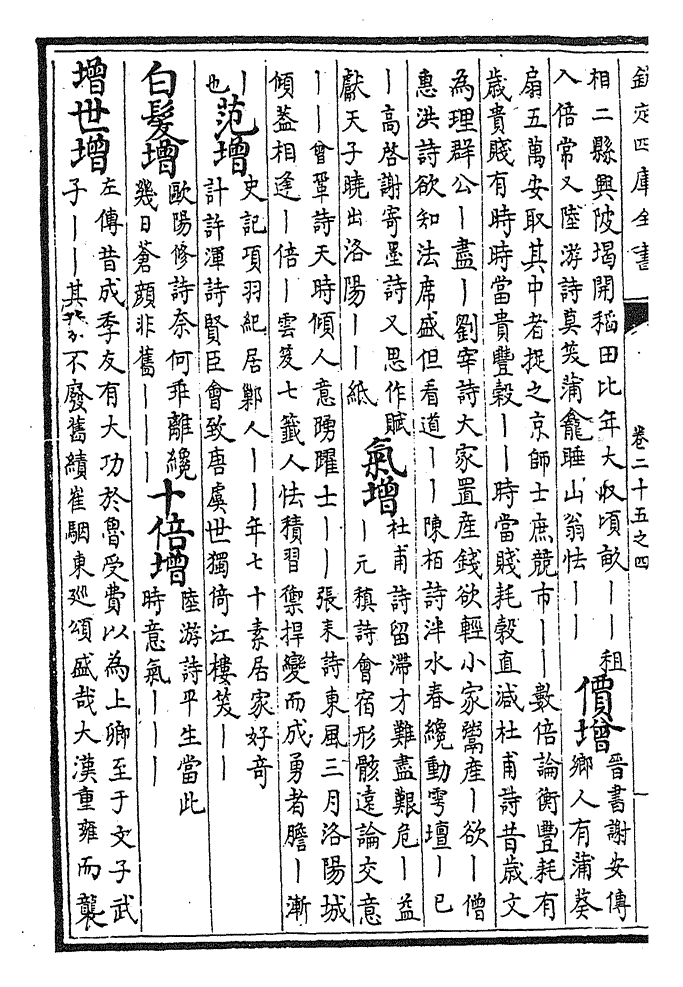 欽定四庫全書
卷二十五之四
相二縣興陂堨開稻田比年大收頃畝丨丨租
入倍常又陸游詩莫笑蒲龕睡山翁怯丨丨
價增
晉書謝安傳
鄉人有蒲葵
扇五萬安取其中者捉之京師士庶競市丨丨數倍論衡豐耗有
歲貴賤有時時當貴豐穀丨丨時當賤耗穀直減杜甫詩昔歲文
為理群公丨盡丨劉宰詩大家置産錢欲輕小家鬻産丨欲丨僧
惠洪詩欲知法席盛但看道丨丨陳栢詩泮水春纔動雩壇丨已
丨高啓謝寄墨詩又思作賦
獻天子曉出洛陽丨丨紙
氣增
杜甫詩留滯才難盡艱危丨益
丨元稹詩會宿形骸遠論交意
丨丨曾鞏詩天時傾人意踴躍士丨丨張耒詩東風三月洛陽城
傾葢相逢丨倍丨雲笈七籤人怯積習禦捍變而成勇者膽丨漸
丨
也
范增
史記項羽紀居鄛人丨丨年七十素居家好奇
計許渾詩賢臣會致唐虞世獨倚江樓笑丨丨
白髮增
歐陽修詩奈何乖離纔
幾日蒼顔非舊丨丨丨
十倍增
陸游詩平生當此
時意氣丨丨丨
增世增
左傳昔成季友有大功於魯受費以為上卿至于文子武
子丨丨其不廢舊績崔駰東廵頌盛哉大漢重雍而襲